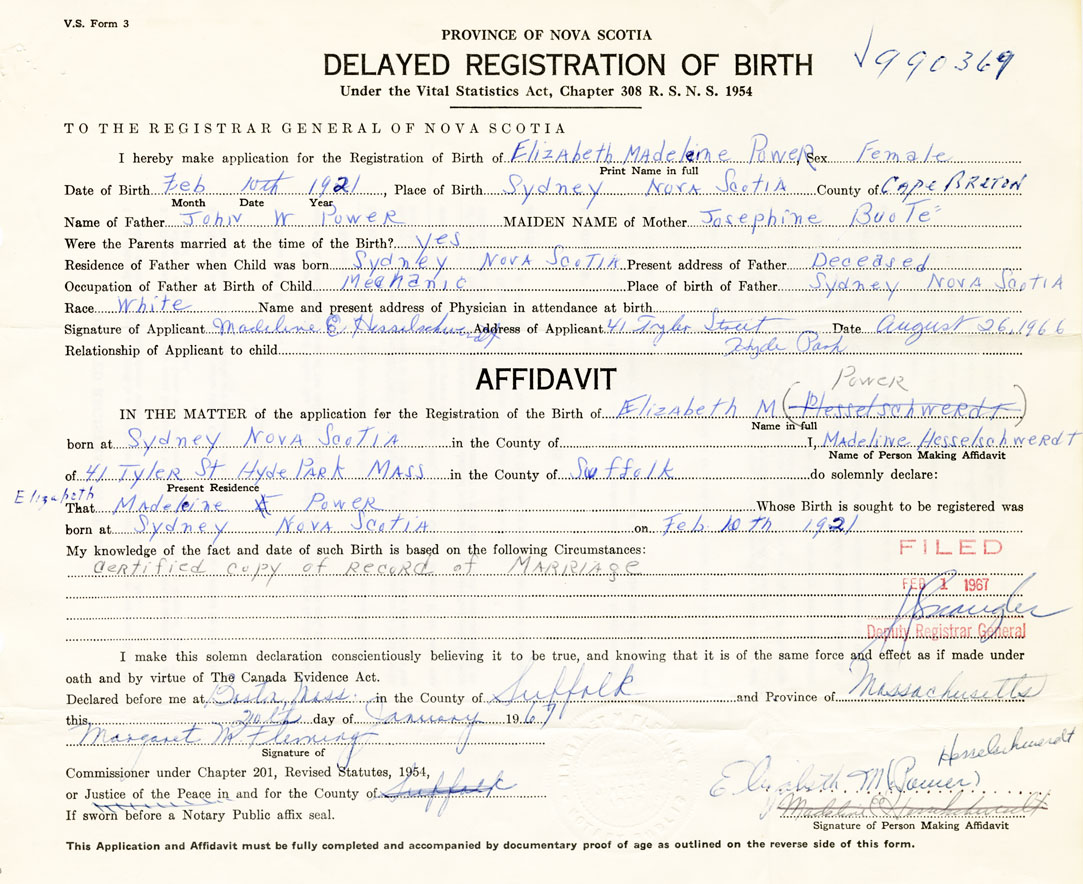 V.S. Form 3
PROVINCE OF NOVA SCOTIA
DELAYED REGISTRATION OF BIRTH
990369
Under the Vital Statistics Act, Chapter 308 R. S. N. S. 1954
TO THE REGISTRAR GENERAL OF NOVA SCOTIA
I hereby make application for the Registration of Birth of Elizabeth Madeleine Power Sex Female
Print Name in full
Date of Birth Feb 10th 1921, Place of Birth Sydney Nova Scotia County of Cape Breton
Month Date Year
Name of Father John W Power MAIDEN NAME of Mother Josephine Buote
Were the Parents married at the time of the Birth? yes
Residence of Father when Child was born Sydney Nova Scotia Present address of Father Deceased
Occupation of Father at Birth of Child Mechanic Place of birth of Father Sydney Nova Scotia
Race White Name and present address of Physician in attendance at birth
Signature of Applicant Madeline E. Hesselschwerdt Address of Applicant 41 Tyler Street Date August 26, 1966
Relationship of Applicant to child Hyde Park
AFFIDAVIT
Power
IN THE MATTER of the application for the Registration of the Birth of Elizabeth M (Hesselschwerdt)
Name in full
born at Sydney Nova Scotia in the County of I, Madeline Hesselschwerdt
Name of Person Making Affidavit
of 41 Tyler St Hyde Park Mass in the County of Suffolk do solemnly declare:
Present Residence
Elizabeth
That Madeleine E Power Whose Birth is sought to be registered was
born at Sydney Nova Scotia on Feb 10th 1921
My knowledge of the fact and date of such Birth is based on the following Circumstances:
Certified copy of record of Marriage
FILED
FEB 1 1967
Deputy Registrar General
I make this solemn declaration conscientiously believing it to be true, and knowing that it is of the same force and effect as if made under
oath and by virtue of The Canada Evidence Act.
Declared before me at Boston, Mass. in the County of Suffolk and Province of Massachusetts
this, 20th day of January 1967
Margaret M Fleming
Signature of
Commissioner under Chapter 201, Revised Statutes, 1954,
or Justice of the Peace in and for the County of Suffolk
If sworn before a Notary Public affix seal.
Hesselschwerdt
Elizabeth M. (Power)
Madeline E Hesselschwerdt
Signature of Person Making Affidavit
This Application and Affidavit must be fully completed and accompanied by documentary proof of age as outlined on the reverse side of this form.